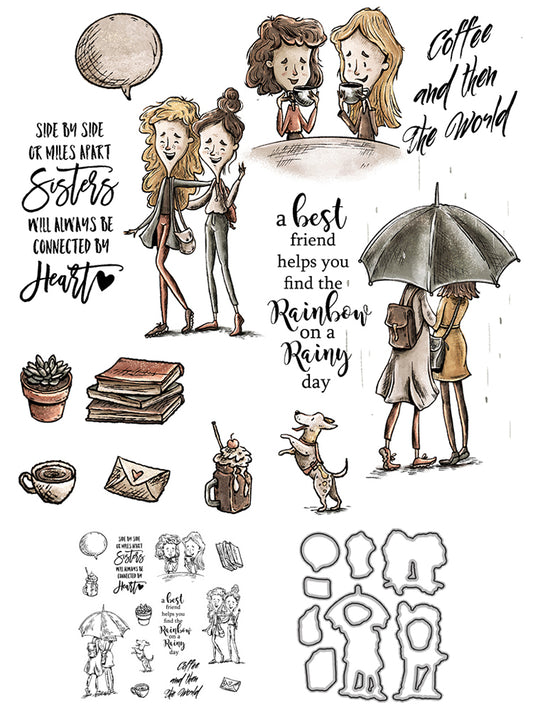 Coffee
and then
the World
SIDE BY SIDE
OR MILES APART
Sisters
WILL ALWAYS BE
CONNECTED BY
Heart
a best
friend
helps you
find the
Rainbow
on a
Rainy
day
SIDE BY SIDE
OR MILES APART
Sisters
WILL ALWAYS BE
CONNECTED BY
Heart
a best
friend
helps you
find the
Rainbow
on a
Rainy
day
Coffee
and then
the World